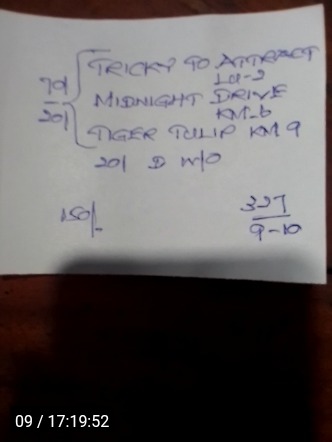 TRICKY TO ATTRACT
70/ LU-2
MIDNIGHT DRIVE
20/ KM-6
TIGER TULIP KM 9
20/ D W/O
150/-
327
9-10
09 / 17:19:52